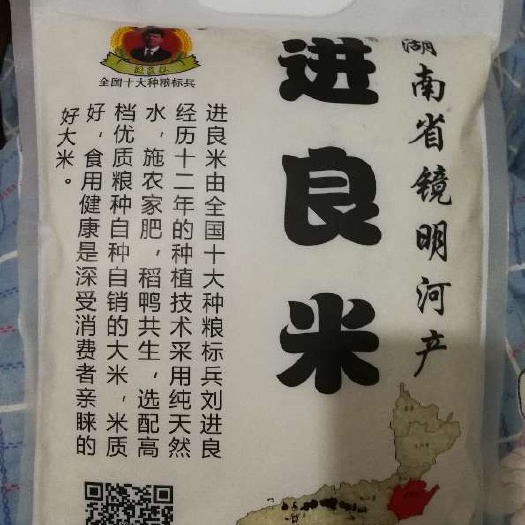 湖南省镜明河产
进良米
全国十大种粮标兵
进良米由全国十大种粮标兵刘进良
经历十二年的种植技术采用纯天然
水，施农家肥，稻鸭共生，选配高
档优质粮种自种自销的大米，米质
好，食用健康是深受消费者亲睐的
好大米。